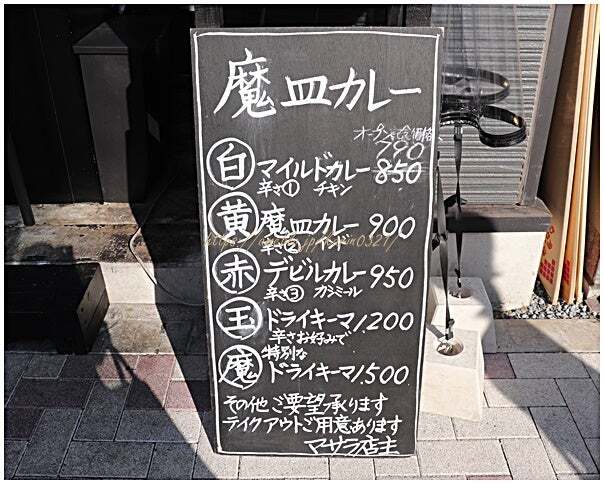 魔皿カレー
オープン記念価格
790
白 マイルドカレー 850
辛さ① チキン
黄 魔皿カレー 900
辛さ②
赤 デビルカレー 950
辛さ③ カシミール
王 ドライキーマ 1,200
辛さお好みで
特別な
魔 ドライキーマ 1,500
その他ご要望承ります
テイクアウトご用意あります
マサラ店主